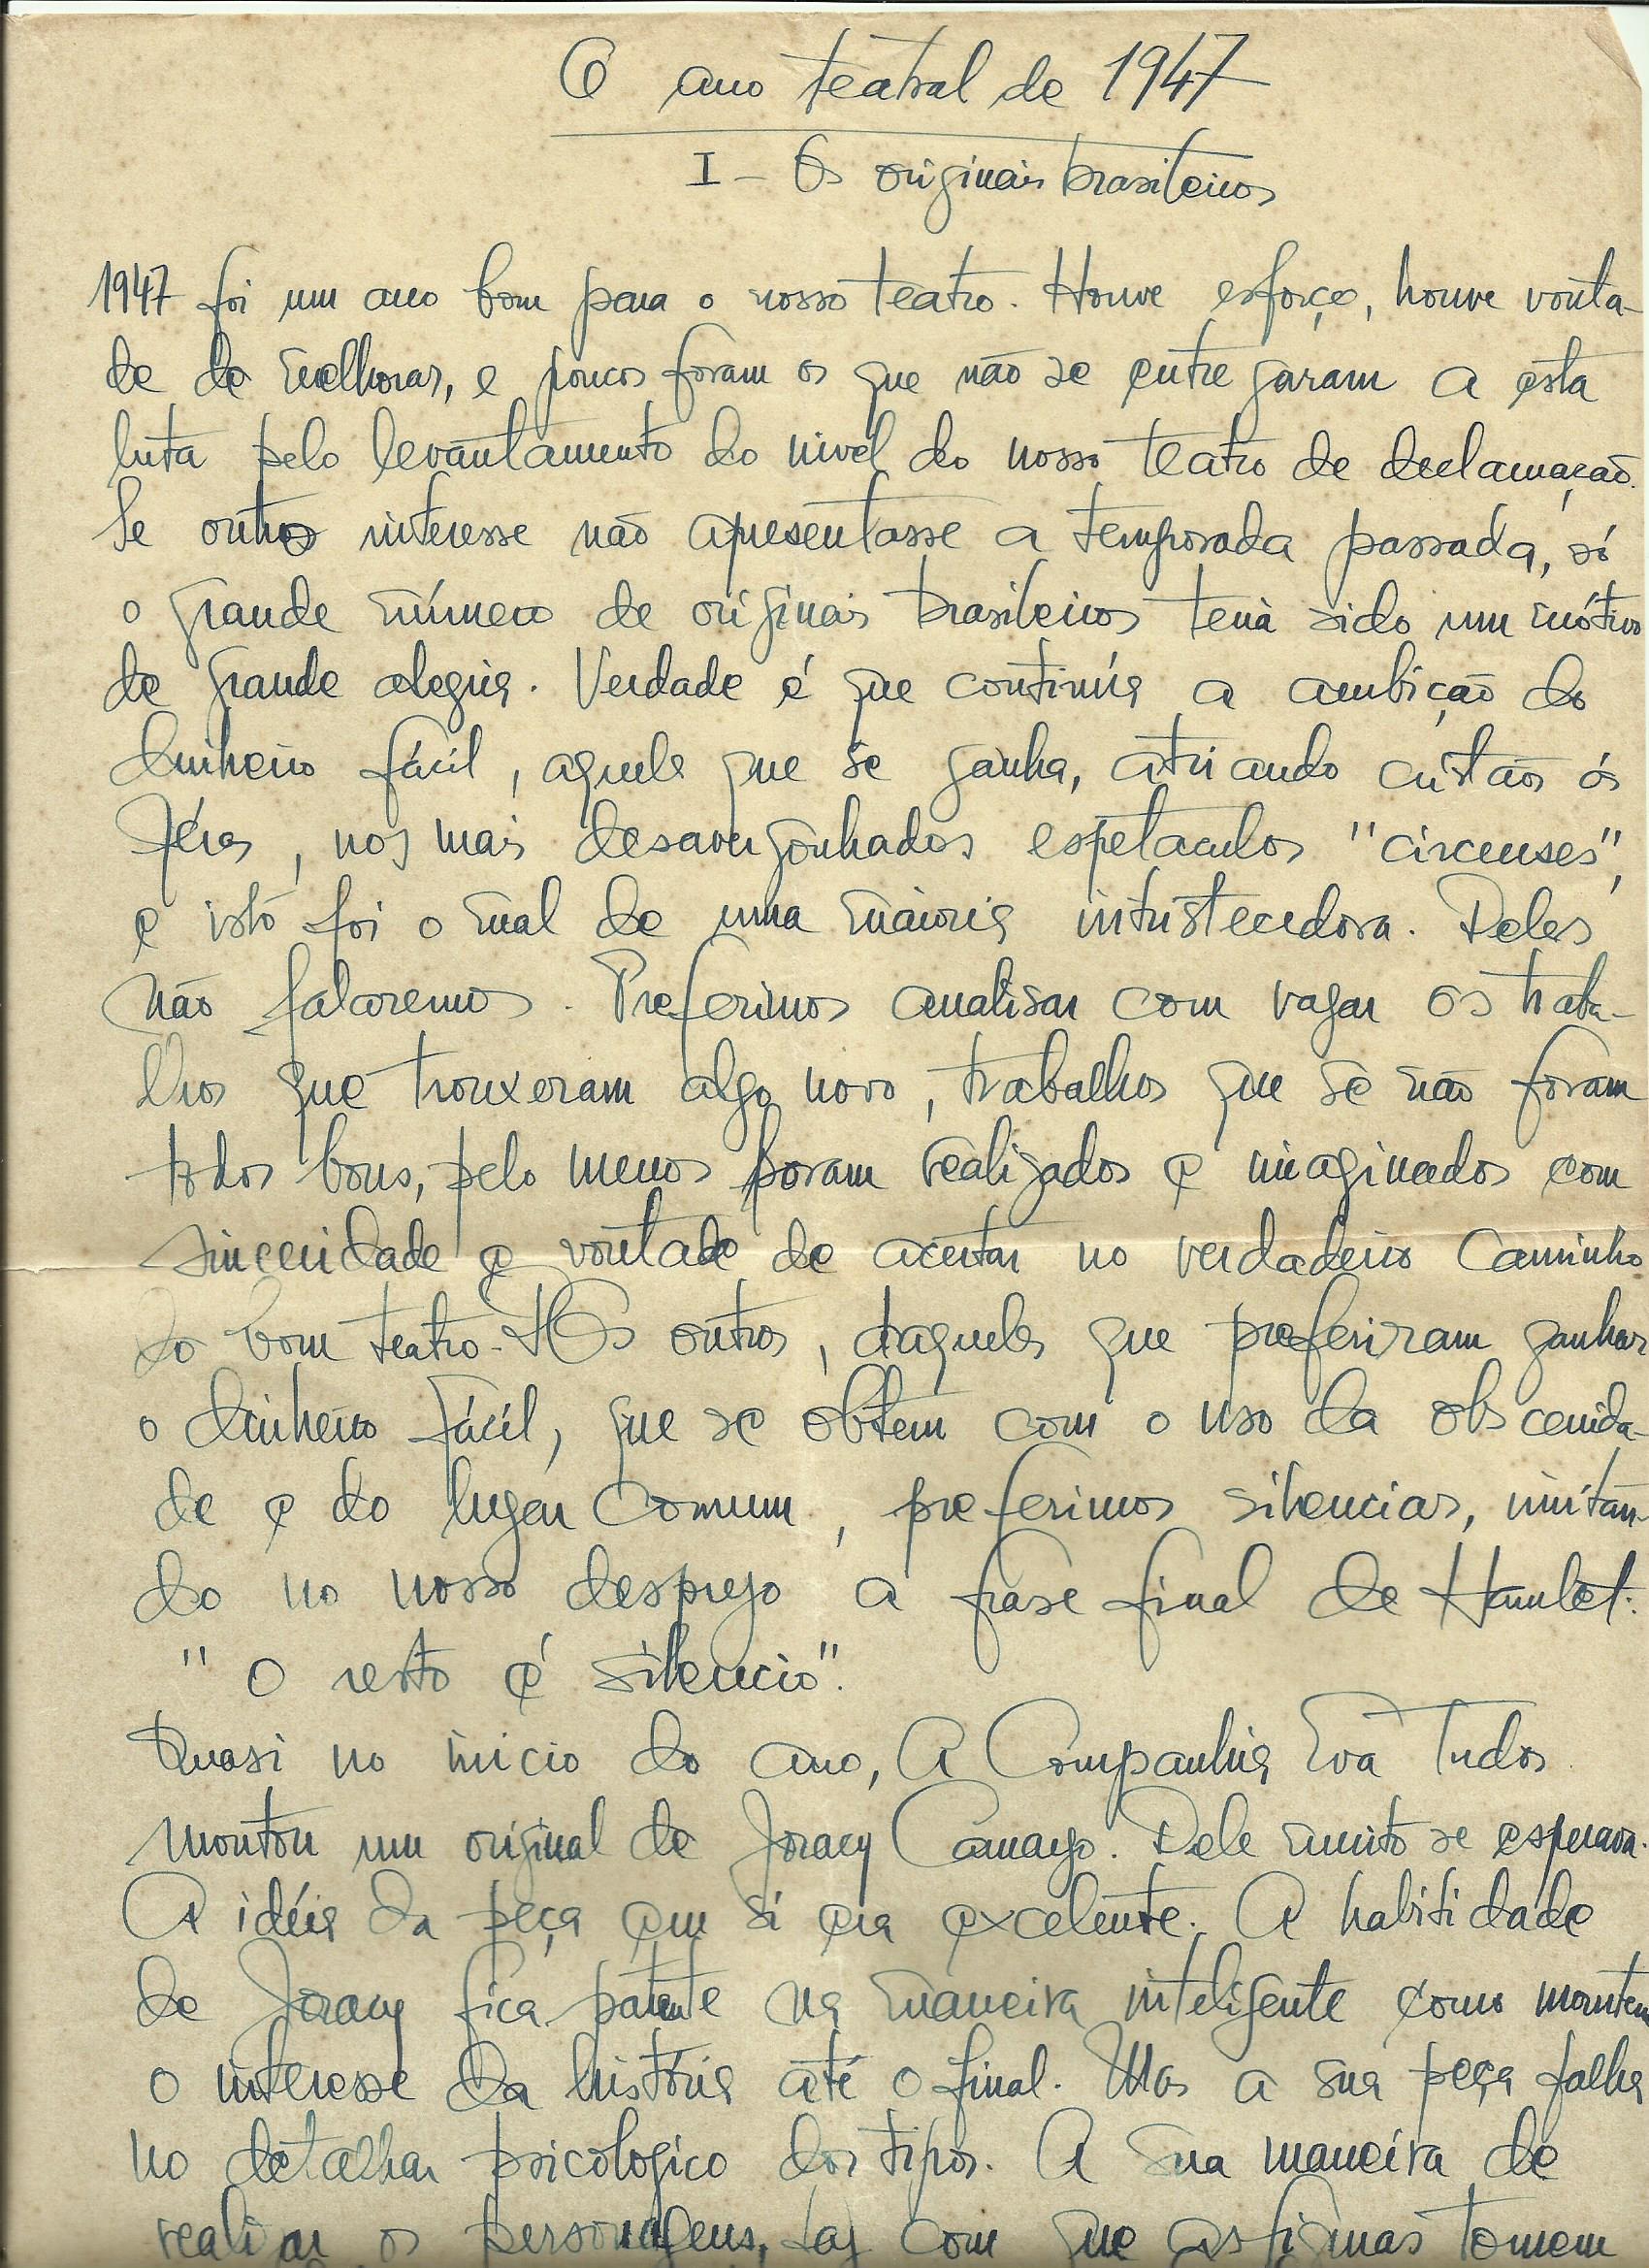 O ano teatral de 1947
I - Os originais brasileiros
1947 foi um ano bom para o nosso teatro. Houve esforço, houve vonta-
de de melhorar, e poucos foram os que não se entregaram a esta
luta pelo levantamento do nivel do nosso teatro de declamação.
Se outro interesse não apresentasse a temporada passada, só
o grande número de originais brasileiros teria sido um mótivo
de grande alegria. Verdade é que continúa a ambição do
dinheiro fácil, aquele que se ganha, atirando cristãos ás
féras, nos mais desavergonhados espetaculos "circenses",
e isto foi o mal de uma maioria intristecedora. Deles
não falaremos. Preferimos analisar com vagar os traba-
lhos que trouxeram algo novo, trabalhos que se não foram
todos bons, pelo menos foram realizados e imaginados com
sinceridade e vontade de acertar no verdadeiro caminho
do bom teatro. Os outros, daqueles que preferiram ganhar
o dinheiro fácil, que se obtem com o uso da obscenida-
de e do lugar comum, preferimos silenciar, imitan-
do no nosso desprezo a frase final de Hamlet:
"O resto é silencio".
Quasi no inicio do ano, A Companhia Eva Tudos
montou um original de Joracy Camargo. Dele muito se esperava.
A idéia da peça em si era excelente. A habilidade
de Joracy fica patente na maneira inteligente como mantem
o interesse da história até o final. Mas a sua peça falha
no detalhar psicologico dos tipos. A sua maneira de
realizar os personagens, faz com que as figuras tomem